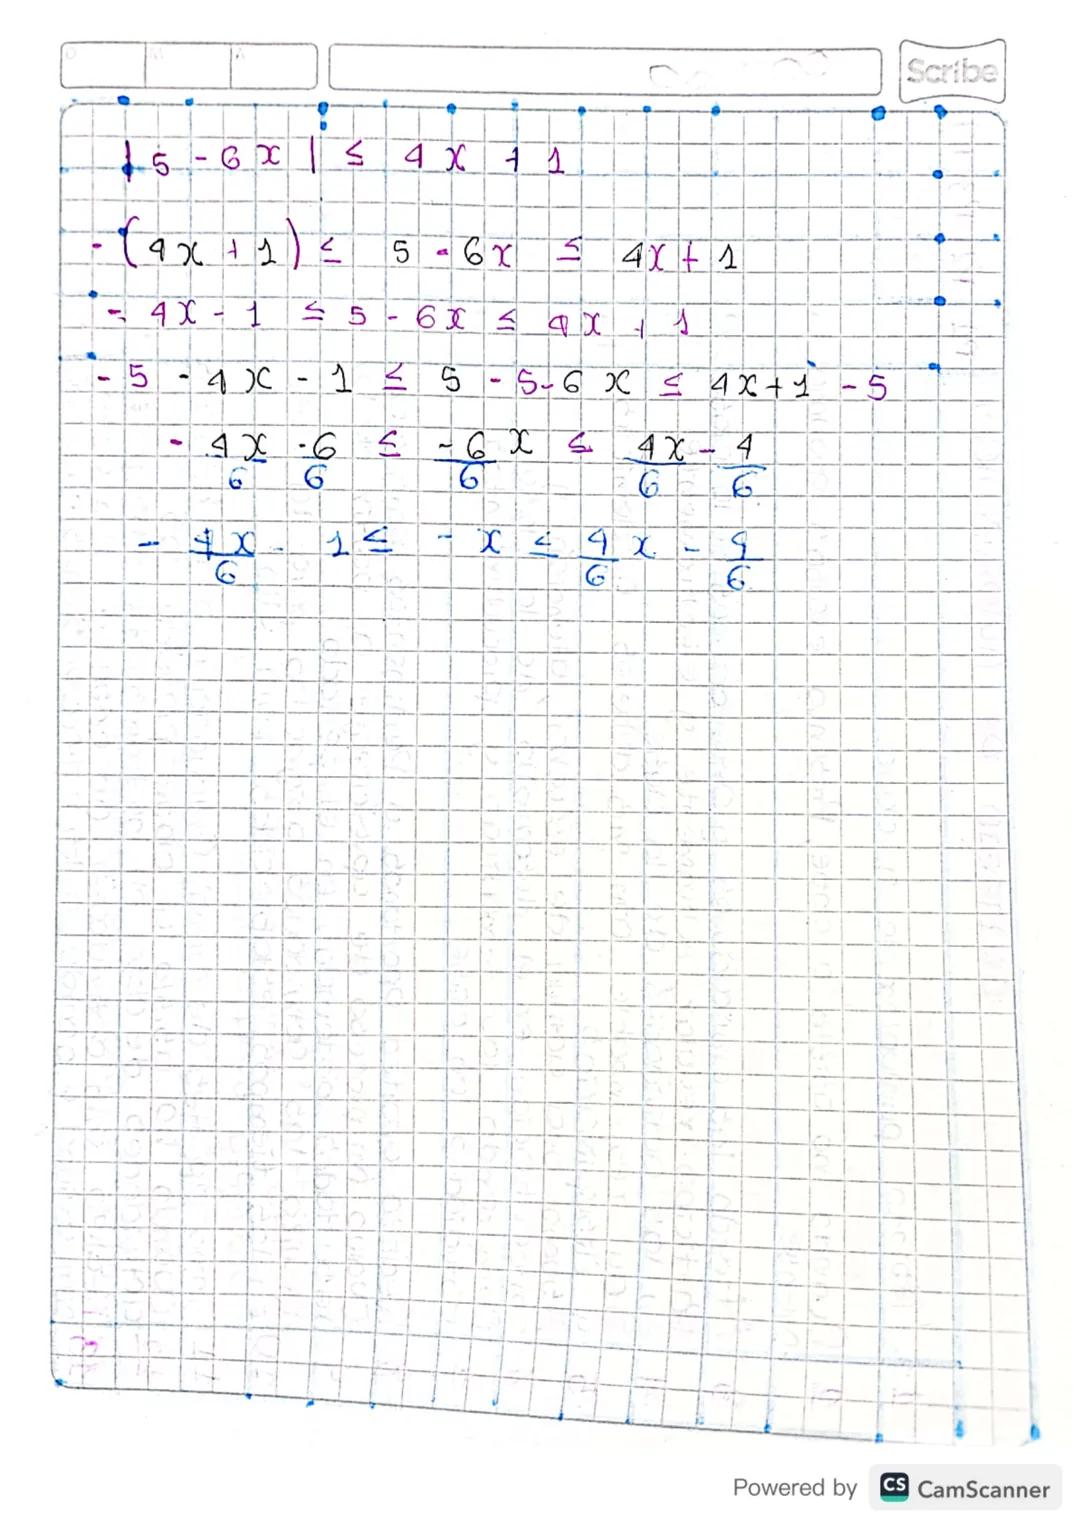 Scribe
|5 - 6x| ≤ 4x + 1
-(4x + 1) ≤ 5 - 6x ≤ 4x + 1
- 4x - 1 ≤ 5 - 6x ≤ 4x + 1
- 5 - 4x - 1 ≤ 5 - 5 - 6x ≤ 4x + 1 - 5
- 4x/6 - 6/6 ≤ - 6/6 x ≤ 4x/6 - 4/6
- 4x/6 - 1 ≤ - x ≤ 4/6 x - 4/6
Powered by CS CamScanner